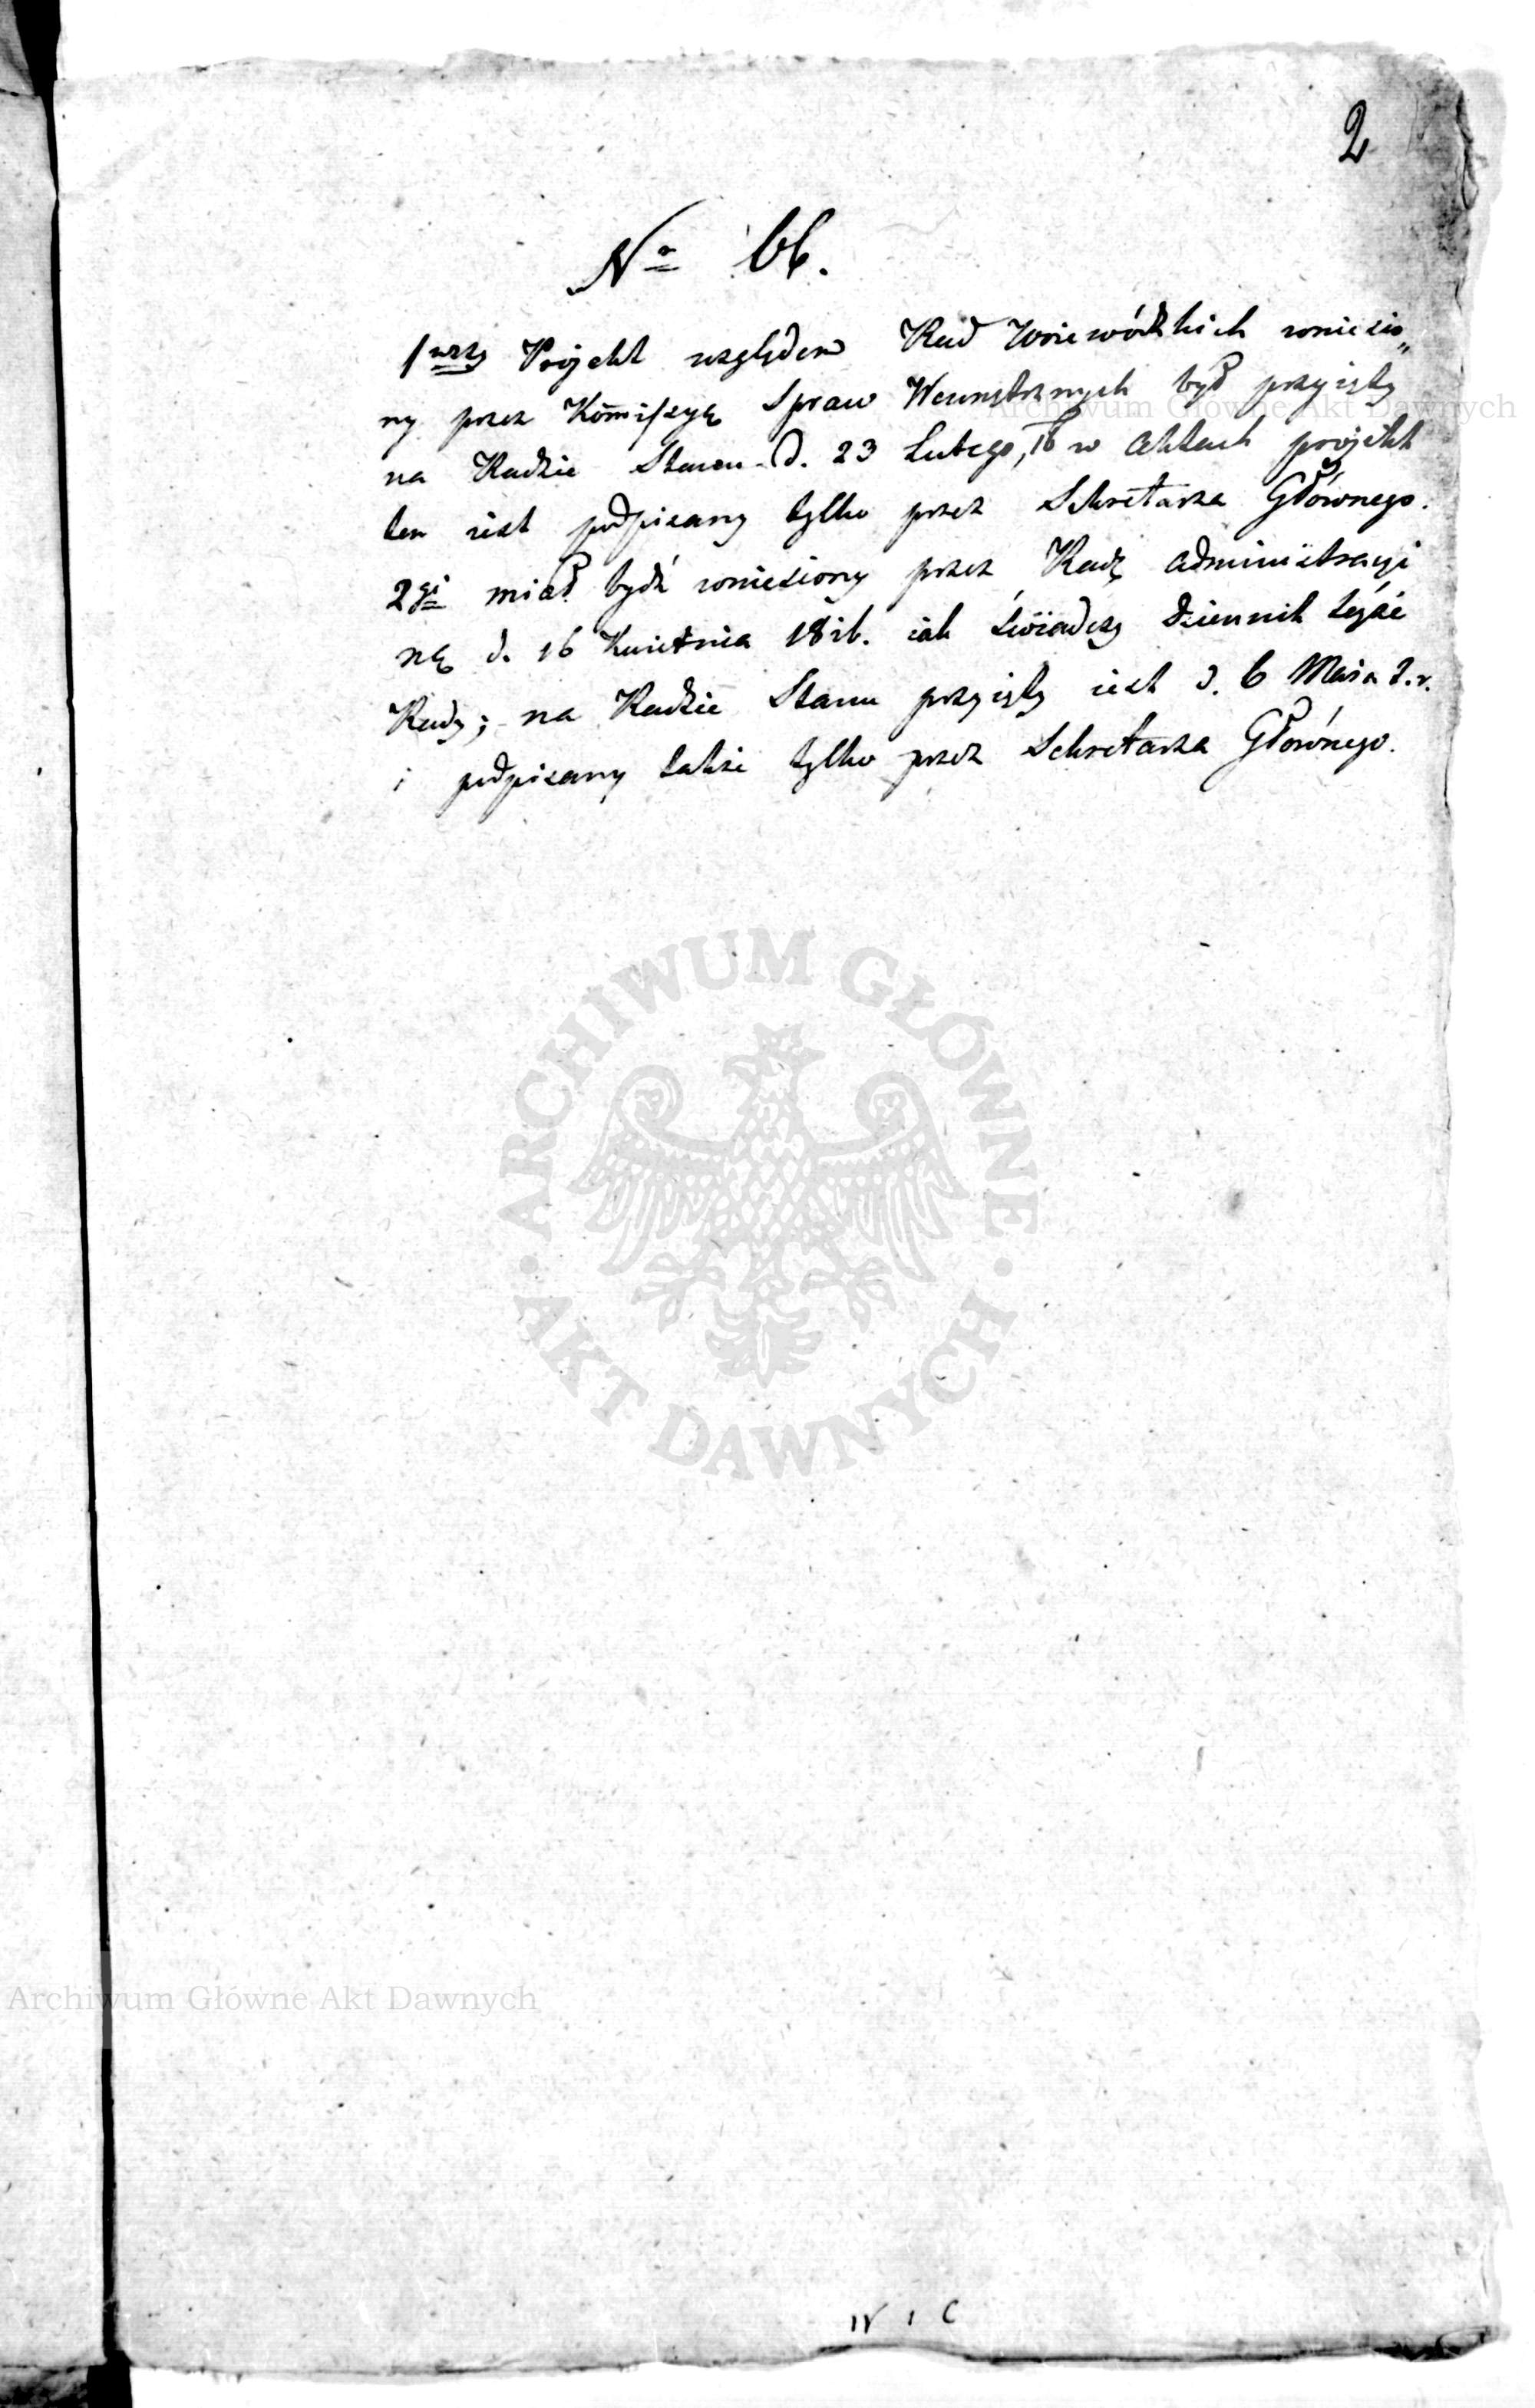 2
Nro 66.
1wszy Projekt względem Rad Woiewódzkich wniesio„
ny przez Kom̄issyę Spraw Wewnętrznych był przyięty
na Radzie Stanu d. 23 Lutego, 16 w Aktach projekt
ten iest podpisany tylko przez Sekretarza Głównego.
2gi miał bydź wniesiony przez Radę Administracyi
ną d. 16 Kwietnia 1816. iak świadczy dziennik teyże
Rady; na Radzie Stanu przyięty iest d. 6 Maia t.r.
i podpisany także tylko przez Sekretarza Głównego.
Archiwum Główne Akt Dawnych
ARCHIWUM GŁÓWNE
AKT DAWNYCH
Archiwum Główne Akt Dawnych
IV 1 C